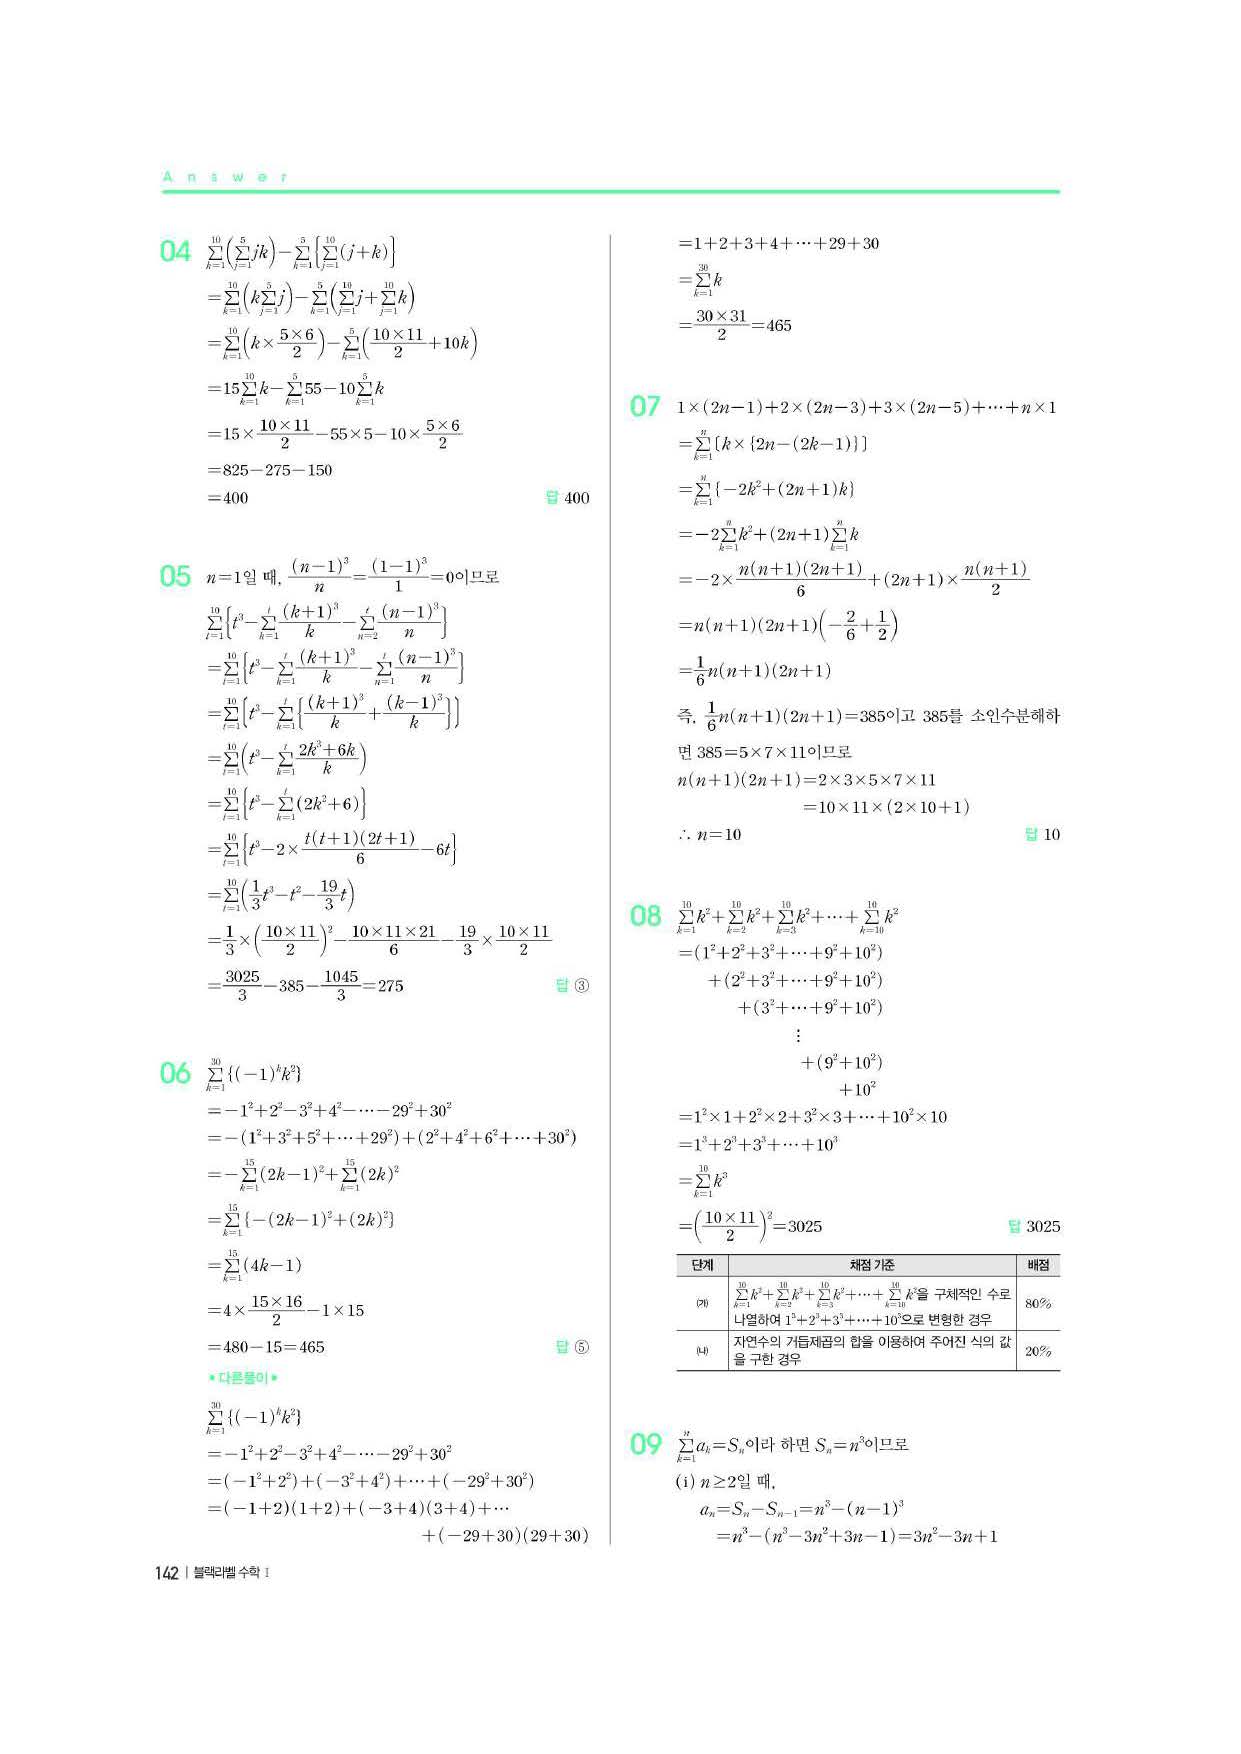 Answer
04 \sum_{k=1}^{10}(\sum_{j=1}^{5}jk)-\sum_{k=1}^{5}{\sum_{j=1}^{10}(j+k)}
=\sum_{k=1}^{10}(k\sum_{j=1}^{5}j)-\sum_{k=1}^{5}(\sum_{j=1}^{10}j+\sum_{j=1}^{10}k)
=\sum_{k=1}^{10}(k×\frac{5×6}{2})-\sum_{k=1}^{5}(\frac{10×11}{2}+10k)
=15\sum_{k=1}^{10}k-\sum_{k=1}^{5}55-10\sum_{k=1}^{5}k
=15×\frac{10×11}{2}-55×5-10×\frac{5×6}{2}
=825-275-150
=400 답 400
05 n=1일 때, \frac{(n-1)^3}{n}=\frac{(1-1)^3}{1}=0이므로
\sum_{t=1}^{10}{t^3-\sum_{k=1}^{t}\frac{(k+1)^3}{k}-\sum_{n=2}^{t}\frac{(n-1)^3}{n}}
=\sum_{t=1}^{10}{t^3-\sum_{k=1}^{t}\frac{(k+1)^3}{k}-\sum_{n=1}^{t}\frac{(n-1)^3}{n}}
=\sum_{t=1}^{10}[t^3-\sum_{k=1}^{t}{\frac{(k+1)^3}{k}+\frac{(k-1)^3}{k}}]
=\sum_{t=1}^{10}(t^3-\sum_{k=1}^{t}\frac{2k^3+6k}{k})
=\sum_{t=1}^{10}{t^3-\sum_{k=1}^{t}(2k^2+6)}
=\sum_{t=1}^{10}{t^3-2×\frac{t(t+1)(2t+1)}{6}-6t}
=\sum_{t=1}^{10}(\frac{1}{3}t^3-t^2-\frac{19}{3}t)
=\frac{1}{3}×(\frac{10×11}{2})^2-\frac{10×11×21}{6}-\frac{19}{3}×\frac{10×11}{2}
=\frac{3025}{3}-385-\frac{1045}{3}=275 답 ③
06 \sum_{k=1}^{30}{(-1)^k k^2}
=-1^2+2^2-3^2+4^2-⋯-29^2+30^2
=-(1^2+3^2+5^2+⋯+29^2)+(2^2+4^2+6^2+⋯+30^2)
=-\sum_{k=1}^{15}(2k-1)^2+\sum_{k=1}^{15}(2k)^2
=\sum_{k=1}^{15}{-(2k-1)^2+(2k)^2}
=\sum_{k=1}^{15}(4k-1)
=4×\frac{15×16}{2}-1×15
=480-15=465 답 ⑤
•다른풀이•
\sum_{k=1}^{30}{(-1)^k k^2}
=-1^2+2^2-3^2+4^2-⋯-29^2+30^2
=(-1^2+2^2)+(-3^2+4^2)+⋯+(-29^2+30^2)
=(-1+2)(1+2)+(-3+4)(3+4)+⋯
+(-29+30)(29+30)
=1+2+3+4+⋯+29+30
=\sum_{k=1}^{30}k
=\frac{30×31}{2}=465
07 1×(2n-1)+2×(2n-3)+3×(2n-5)+⋯+n×1
=\sum_{k=1}^{n}[k×{2n-(2k-1)}]
=\sum_{k=1}^{n}{-2k^2+(2n+1)k}
=-2\sum_{k=1}^{n}k^2+(2n+1)\sum_{k=1}^{n}k
=-2×\frac{n(n+1)(2n+1)}{6}+(2n+1)×\frac{n(n+1)}{2}
=n(n+1)(2n+1)(-\frac{2}{6}+\frac{1}{2})
=\frac{1}{6}n(n+1)(2n+1)
즉, \frac{1}{6}n(n+1)(2n+1)=385이고 385를 소인수분해하
면 385=5×7×11이므로
n(n+1)(2n+1)=2×3×5×7×11
=10×11×(2×10+1)
∴ n=10 답 10
08 \sum_{k=1}^{10}k^2+\sum_{k=2}^{10}k^2+\sum_{k=3}^{10}k^2+⋯+\sum_{k=10}^{10}k^2
=(1^2+2^2+3^2+⋯+9^2+10^2)
+(2^2+3^2+⋯+9^2+10^2)
+(3^2+⋯+9^2+10^2)
⋮
+(9^2+10^2)
+10^2
=1^2×1+2^2×2+3^2×3+⋯+10^2×10
=1^3+2^3+3^3+⋯+10^3
=\sum_{k=1}^{10}k^3
=(\frac{10×11}{2})^2=3025 답 3025
단계 채점 기준 배점
㈎ \sum_{k=1}^{10}k^2+\sum_{k=2}^{10}k^2+\sum_{k=3}^{10}k^2+⋯+\sum_{k=10}^{10}k^2을 구체적인 수로 80%
나열하여 1^3+2^3+3^3+⋯+10^3으로 변형한 경우
㈏ 자연수의 거듭제곱의 합을 이용하여 주어진 식의 값 20%
을 구한 경우
09 \sum_{k=1}^{n}a_k=S_n이라 하면 S_n=n^3이므로
(i) n≥2일 때,
a_n=S_n-S_{n-1}=n^3-(n-1)^3
=n^3-(n^3-3n^2+3n-1)=3n^2-3n+1
142 | 블랙라벨 수학 Ⅰ